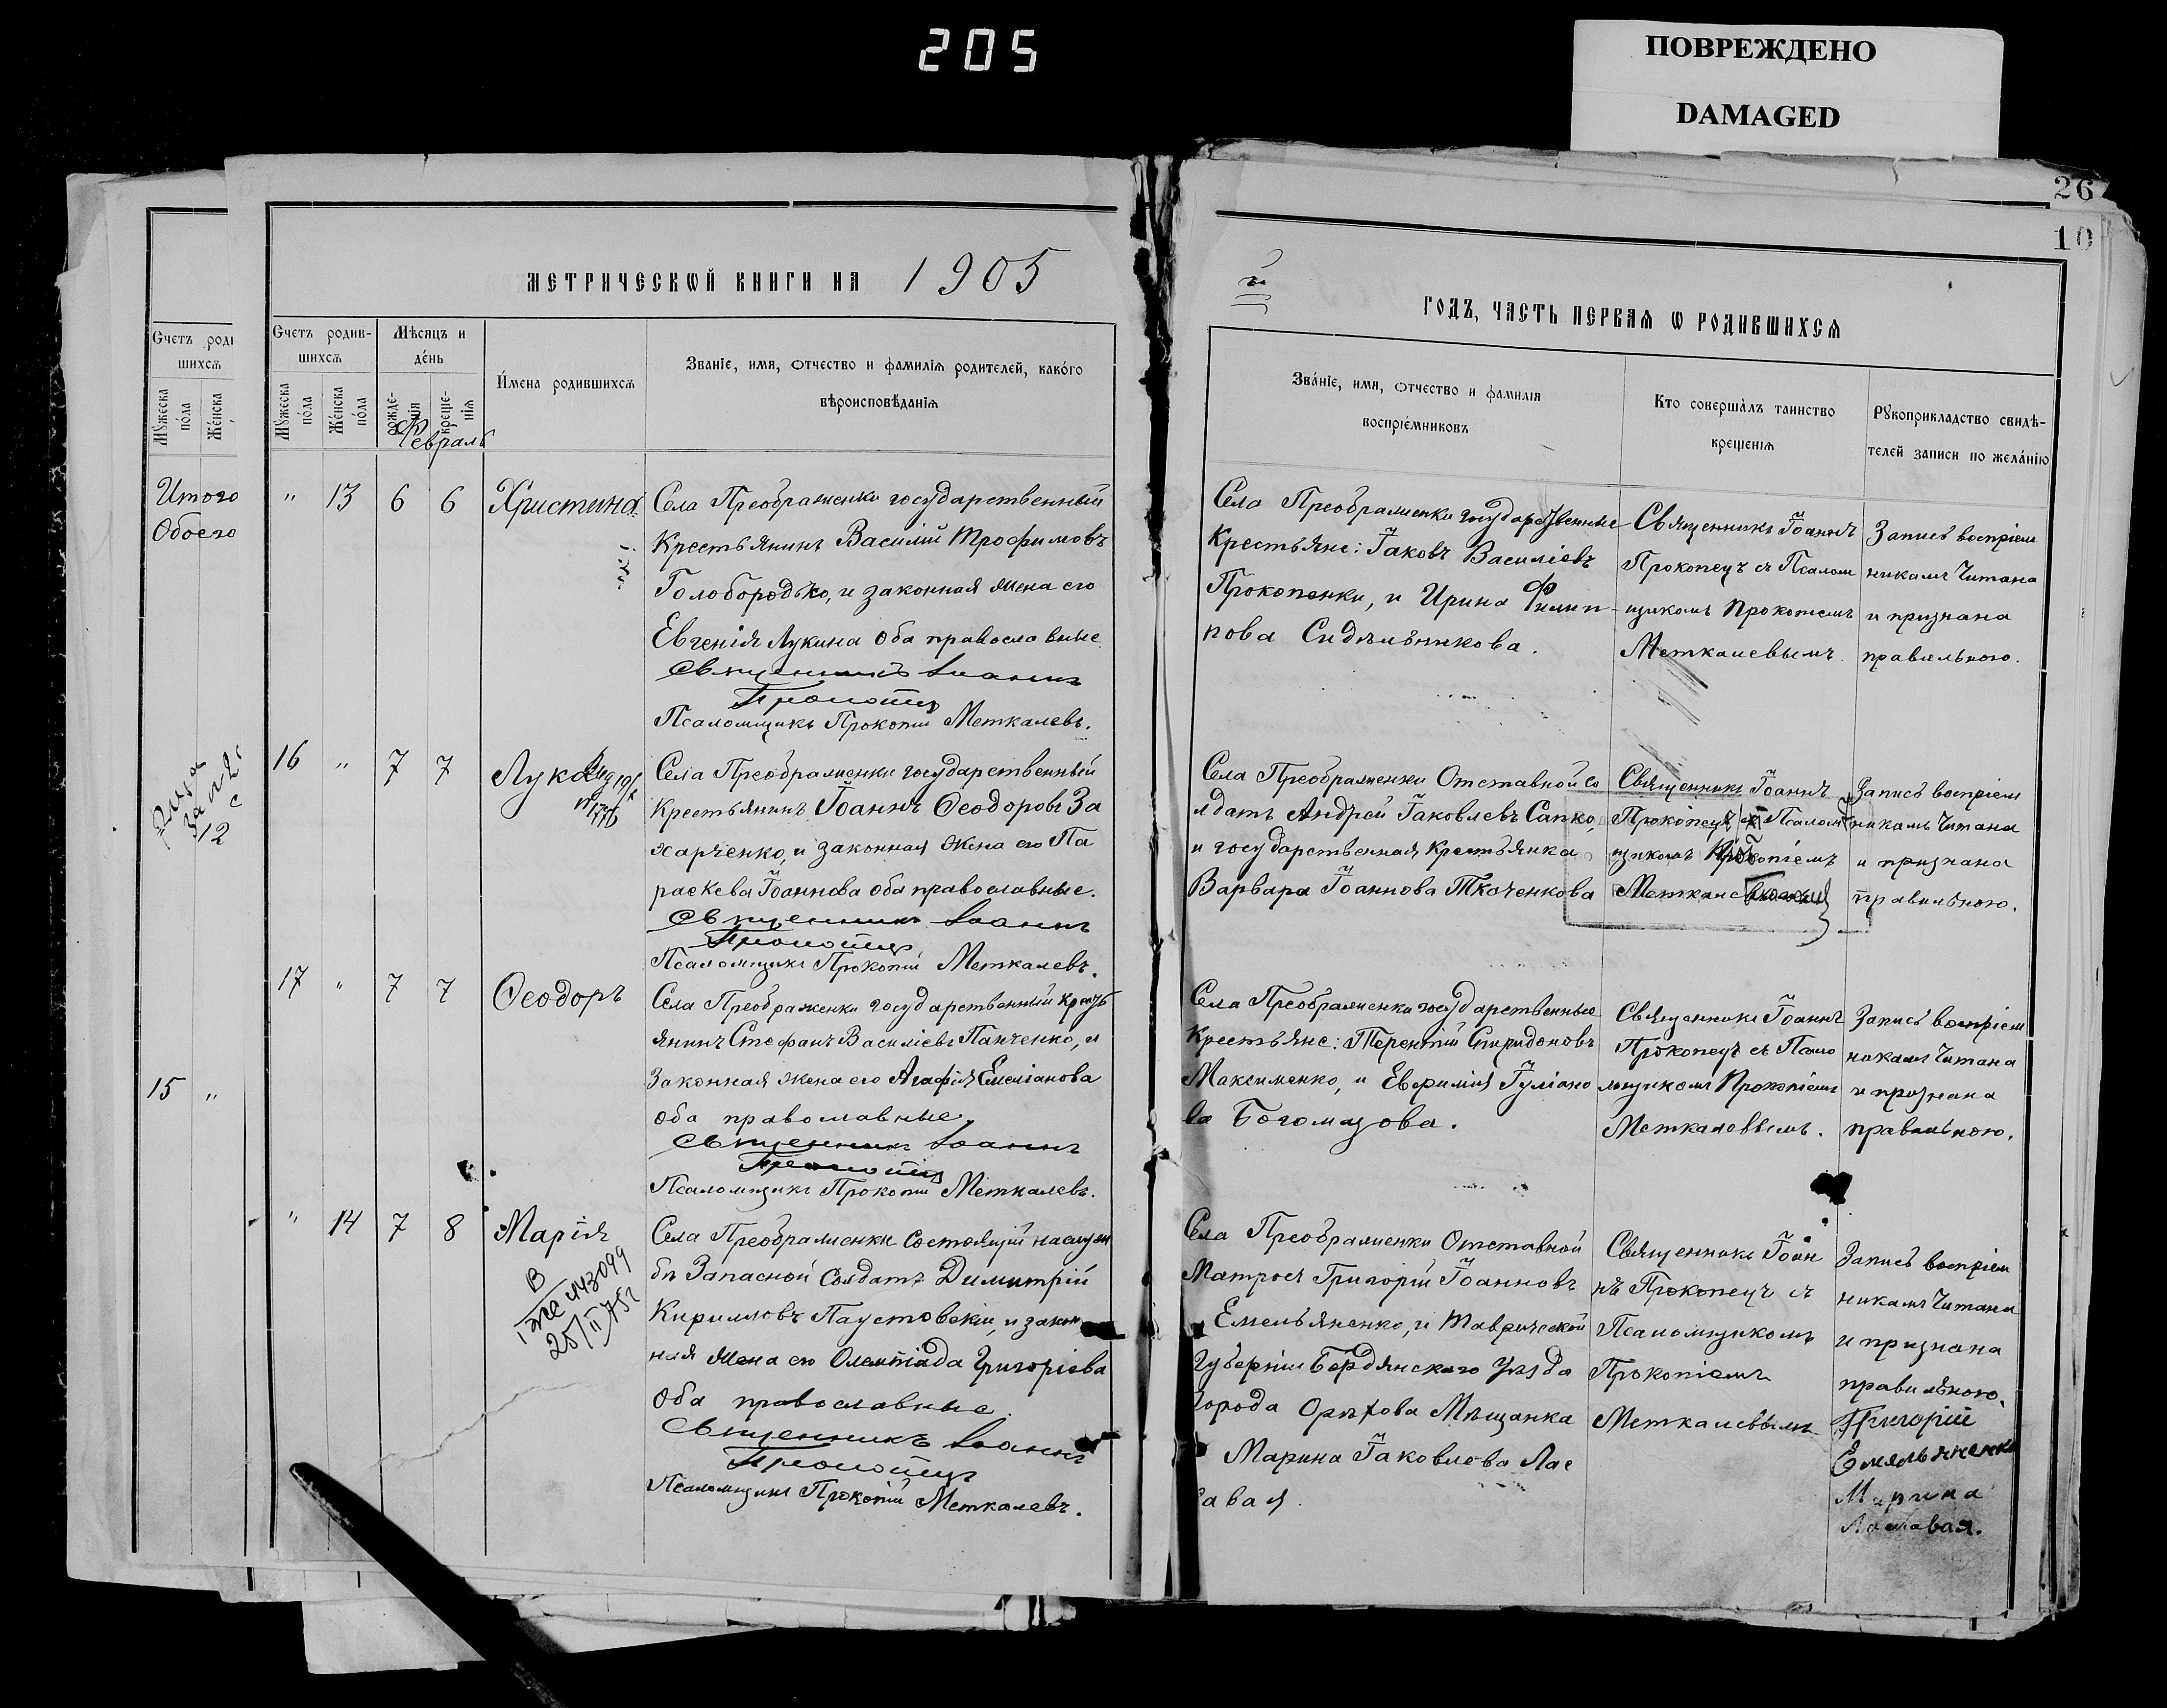 205
ПОВРЕЖДЕНО
DAMAGED
26
10
МЕТРИЧЕСКѠЙ КНИГИ НА 1905
й ГОДЪ, ЧАСТЬ ПЕРВАѦ Ѡ РОДИВШИХСѦ
Счетъ роди
шихсѧ
Мꙋжеска пола
Же́нска
Счетъ родив-
шихсѧ
Мꙋжеска пола
Же́нска пола
Мѣсяцъ и
де́нь
рожде-
ния
креще-
нія
Февраль
И́мена родившихсѧ
Званіе, имя, ѻтчество и фамилія родителей, како́го
вѣроисповѣданія
Зва́ніе, имя, ѻтчество и фамилія
воспріе́мниковъ
Кто соверша̀лъ таинство
крещенія
Рꙋкоприкладство свидѣ-
телей записи по жела́нію
Итого
Обоего
12
15 "
" 13 6 6 Христина
Села Преображенки государственный
Крестьянинъ Василій Трофимовъ
Голобородько, и законная жена его
Евгенія Лукина оба православные
Священникъ Іоаннъ
Прокопец
Псаломщикъ Прокопій Меткалевъ.
Села Преображенки государственные
Крестьяне: Іаковъ Василіевъ
Прокопенки, и Ирина Филип-
пова Сидѣльникова.
Священникъ Іоаннъ
Прокопецъ съ Псалом
щикомъ Прокопіемъ
Меткалевымъ.
Запись воспріем
никамъ читана
и признана
правильною.
16 " 7 7 Лука
Села Преображенки государственный
Крестьянинъ Іоаннъ Ѳеодоровъ За
харченко, и законная жена его Па
раскева Іоаннова оба православные.
Священникъ Іоаннъ
Прокопец
Псаломщикъ Прокопій Меткалевъ.
Села Преображенки Отставной со
лдатъ Андрей Іаковлевъ Сапко,
и государственная крестьянка
Варвара Іоаннова Ткаченкова
Священникъ Іоаннъ
Прокопецъ съ Псалом
щикомъ Прокопіемъ
Запись воспріем
никамъ читана
и признана
правильною.
17 " 7 7 Ѳеодоръ
Села Преображенки государственный крестья
янинъ Стефанъ Василіевъ Панченко, и
законная жена его Агафія Емеліанова
оба православные.
Священникъ Іоаннъ
Прокопец
Псаломщикъ Прокопій Меткалевъ.
Села Преображенки государственные
Крестьяне: Терентій Спиридоновъ
Максименко, и Евфимія Іуліано
ва Богомазова.
Священникъ Іоаннъ
Прокопецъ съ Псало
мщикомъ Прокопіемъ
Меткаловвымъ.
Запись воспріем
никамъ читана
и признана
правильною.
" 14 7 8 Марія
В
I ЖС №43099
25/II 75г
Села Преображенки состоящій на служ
бѣ Запасной Солдатъ Димитрій
Кирилловъ Паустовскій, и закон
ная жена его Олимпіада Григоріева
Оба православные.
Священникъ Іоаннъ
Прокопец
Псаломщикъ Прокопій Меткалевъ.
Села Преображенки Отставной
Матросъ Григорій Іоанновъ
Емельяненко, и Таврической
Губерніи Бердянскаго Уѣзда
города Орѣхова Мѣщанка
Марина Іаковлева Лас
авая.
Священникъ Іоан
нъ Прокопецъ съ
Псаломщикомъ
Прокопіемъ
Меткалевымъ
Запись воспріем
никамъ читана
и признана
правильною.
Григорій
Емельяненко
Марина